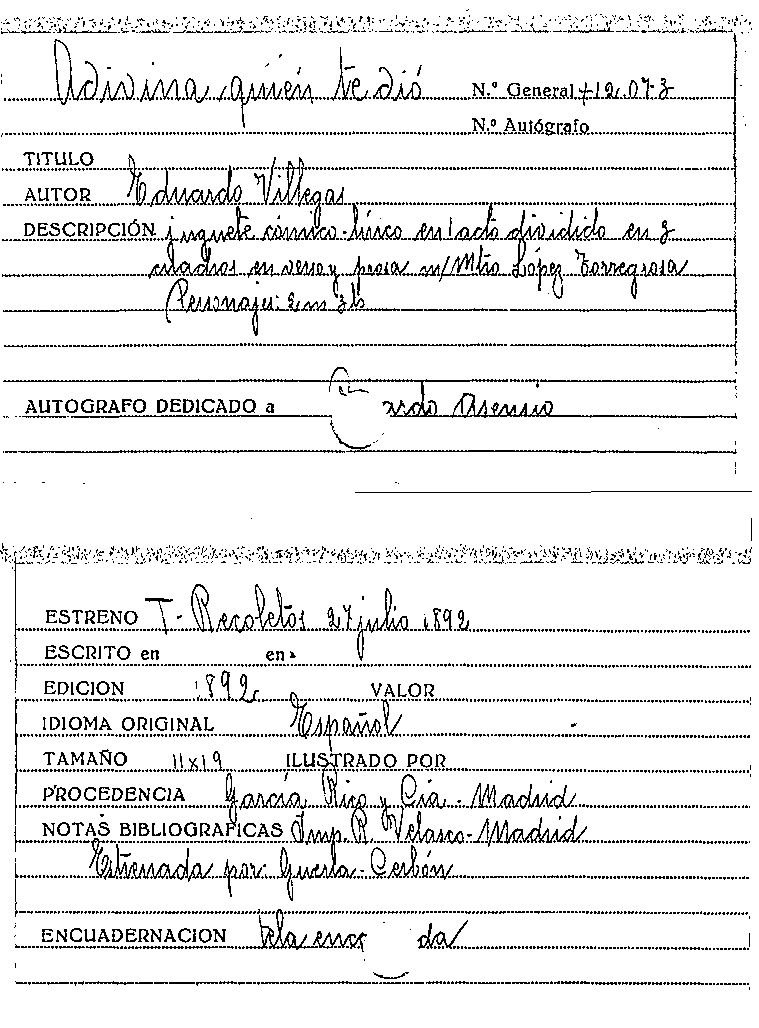 Adivina quién te dió
N.º General +12.073
N.º Autógrafo
TITULO
AUTOR Eduardo Villegas
DESCRIPCIÓN juguete cómico-lírico en 1 acto dividido en 3
cuadros en verso y prosa m/Mtro López Torregrosa
Personajes: 2 m 3 h
AUTOGRAFO DEDICADO a ardo Asensio
ESTRENO T- Recoletos 27 julio 1892
ESCRITO en en
EDICION 1892 VALOR
IDIOMA ORIGINAL Español
TAMAÑO 11x19 ILUSTRADO POR
PROCEDENCIA García Rico y Cía - Madrid
NOTAS BIBLIOGRAFICAS Imp. R. Velasco - Madrid
Estrenada por: Guerra - Cerbón
ENCUADERNACION tela da